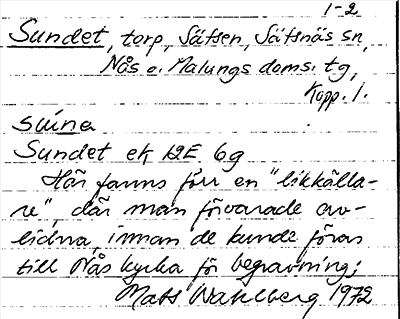 1-2
Sundet, torp, Sätsen, Sätsnäs sn,
Nås o. Malungs doms. tg,
Kopp. l.
suina
Sundet ek 12E 6g
Här fanns förr en "likkälla-
re", där man förvarade av-
lidna, innan de kunde föras
till Nås kyrka för begravning;
Mats Wahlberg 1972